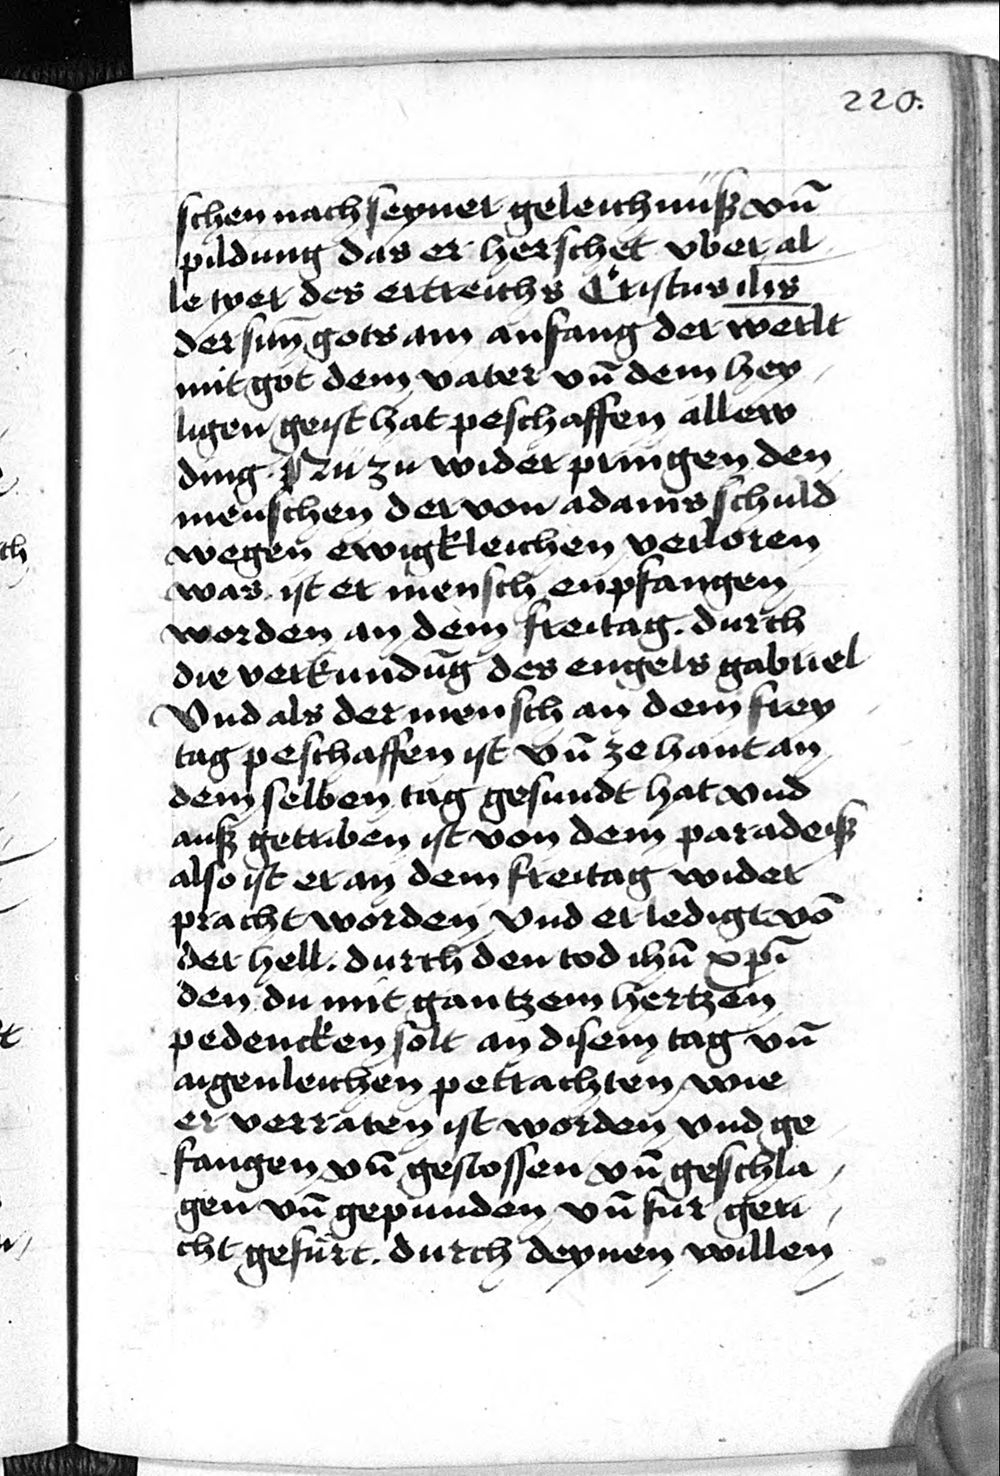 220.
schen nach seyner geleichnüß vn̄
pildung das er herschet vber al
le tyer des ertreichs Cristus ih̄s
der sun gots am anfang der werlt
mit got dem vater vn̄ dem hey
ligen geist hat peschaffen allew
ding. Nu zu wider pringen den
menschen der von adams schuld
wegen ewigkleichen verloren
was. ist er mensch enpfangen
worden an dem freitag. durch
die verkundūg des engels gabriel
Vnd als der mensch an dem frey
tag peschaffen ist vn̄ ze hant an
dem selben tag gesundt hat vnd
auß getriben ist von dem paradeiß
also ist er an dem freitag wider
pracht worden vnd erledigt vō
der hell. durch den tod ihū xpī
den du mit gantzem hertzen
pedencken solt an disem tag vn̄
aigenleichen petrachten wie
er verraten ist worden vnd ge
fangen vn̄ gestossen vn̄ geschla
gen vn̄ gepunden vn̄ fur geri
cht gefürt. durch deynen willen